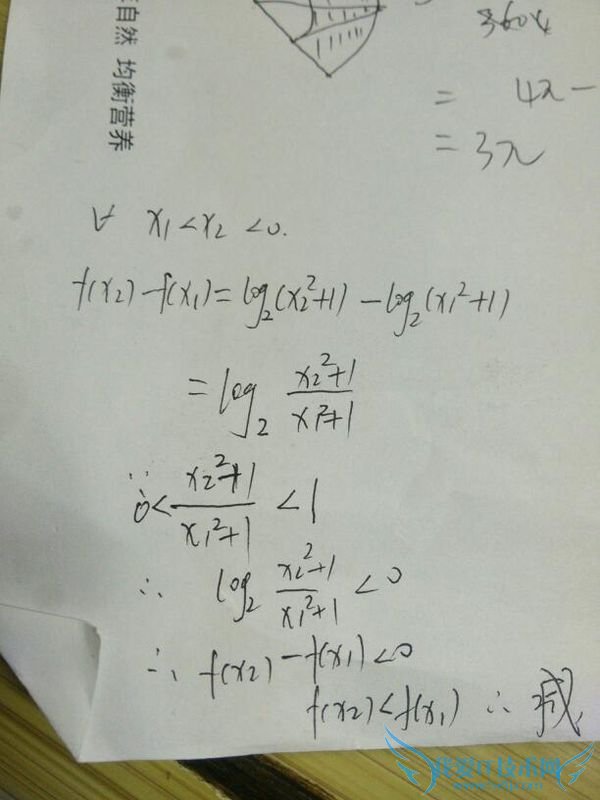 自然 均衡营养
360
= 4π-
= 3π
∀ x₁<x₂<0.
f(x₂)-f(x₁)=log₂(x₂²+1)-log₂(x₁²+1)
=log₂ (x₂²+1)/(x₁²+1)
∵ 0<(x₂²+1)/(x₁²+1)<1
∴ log₂ (x₂²+1)/(x₁²+1)<0
∴ f(x₂)-f(x₁)<0
f(x₂)<f(x₁) ∴ 减